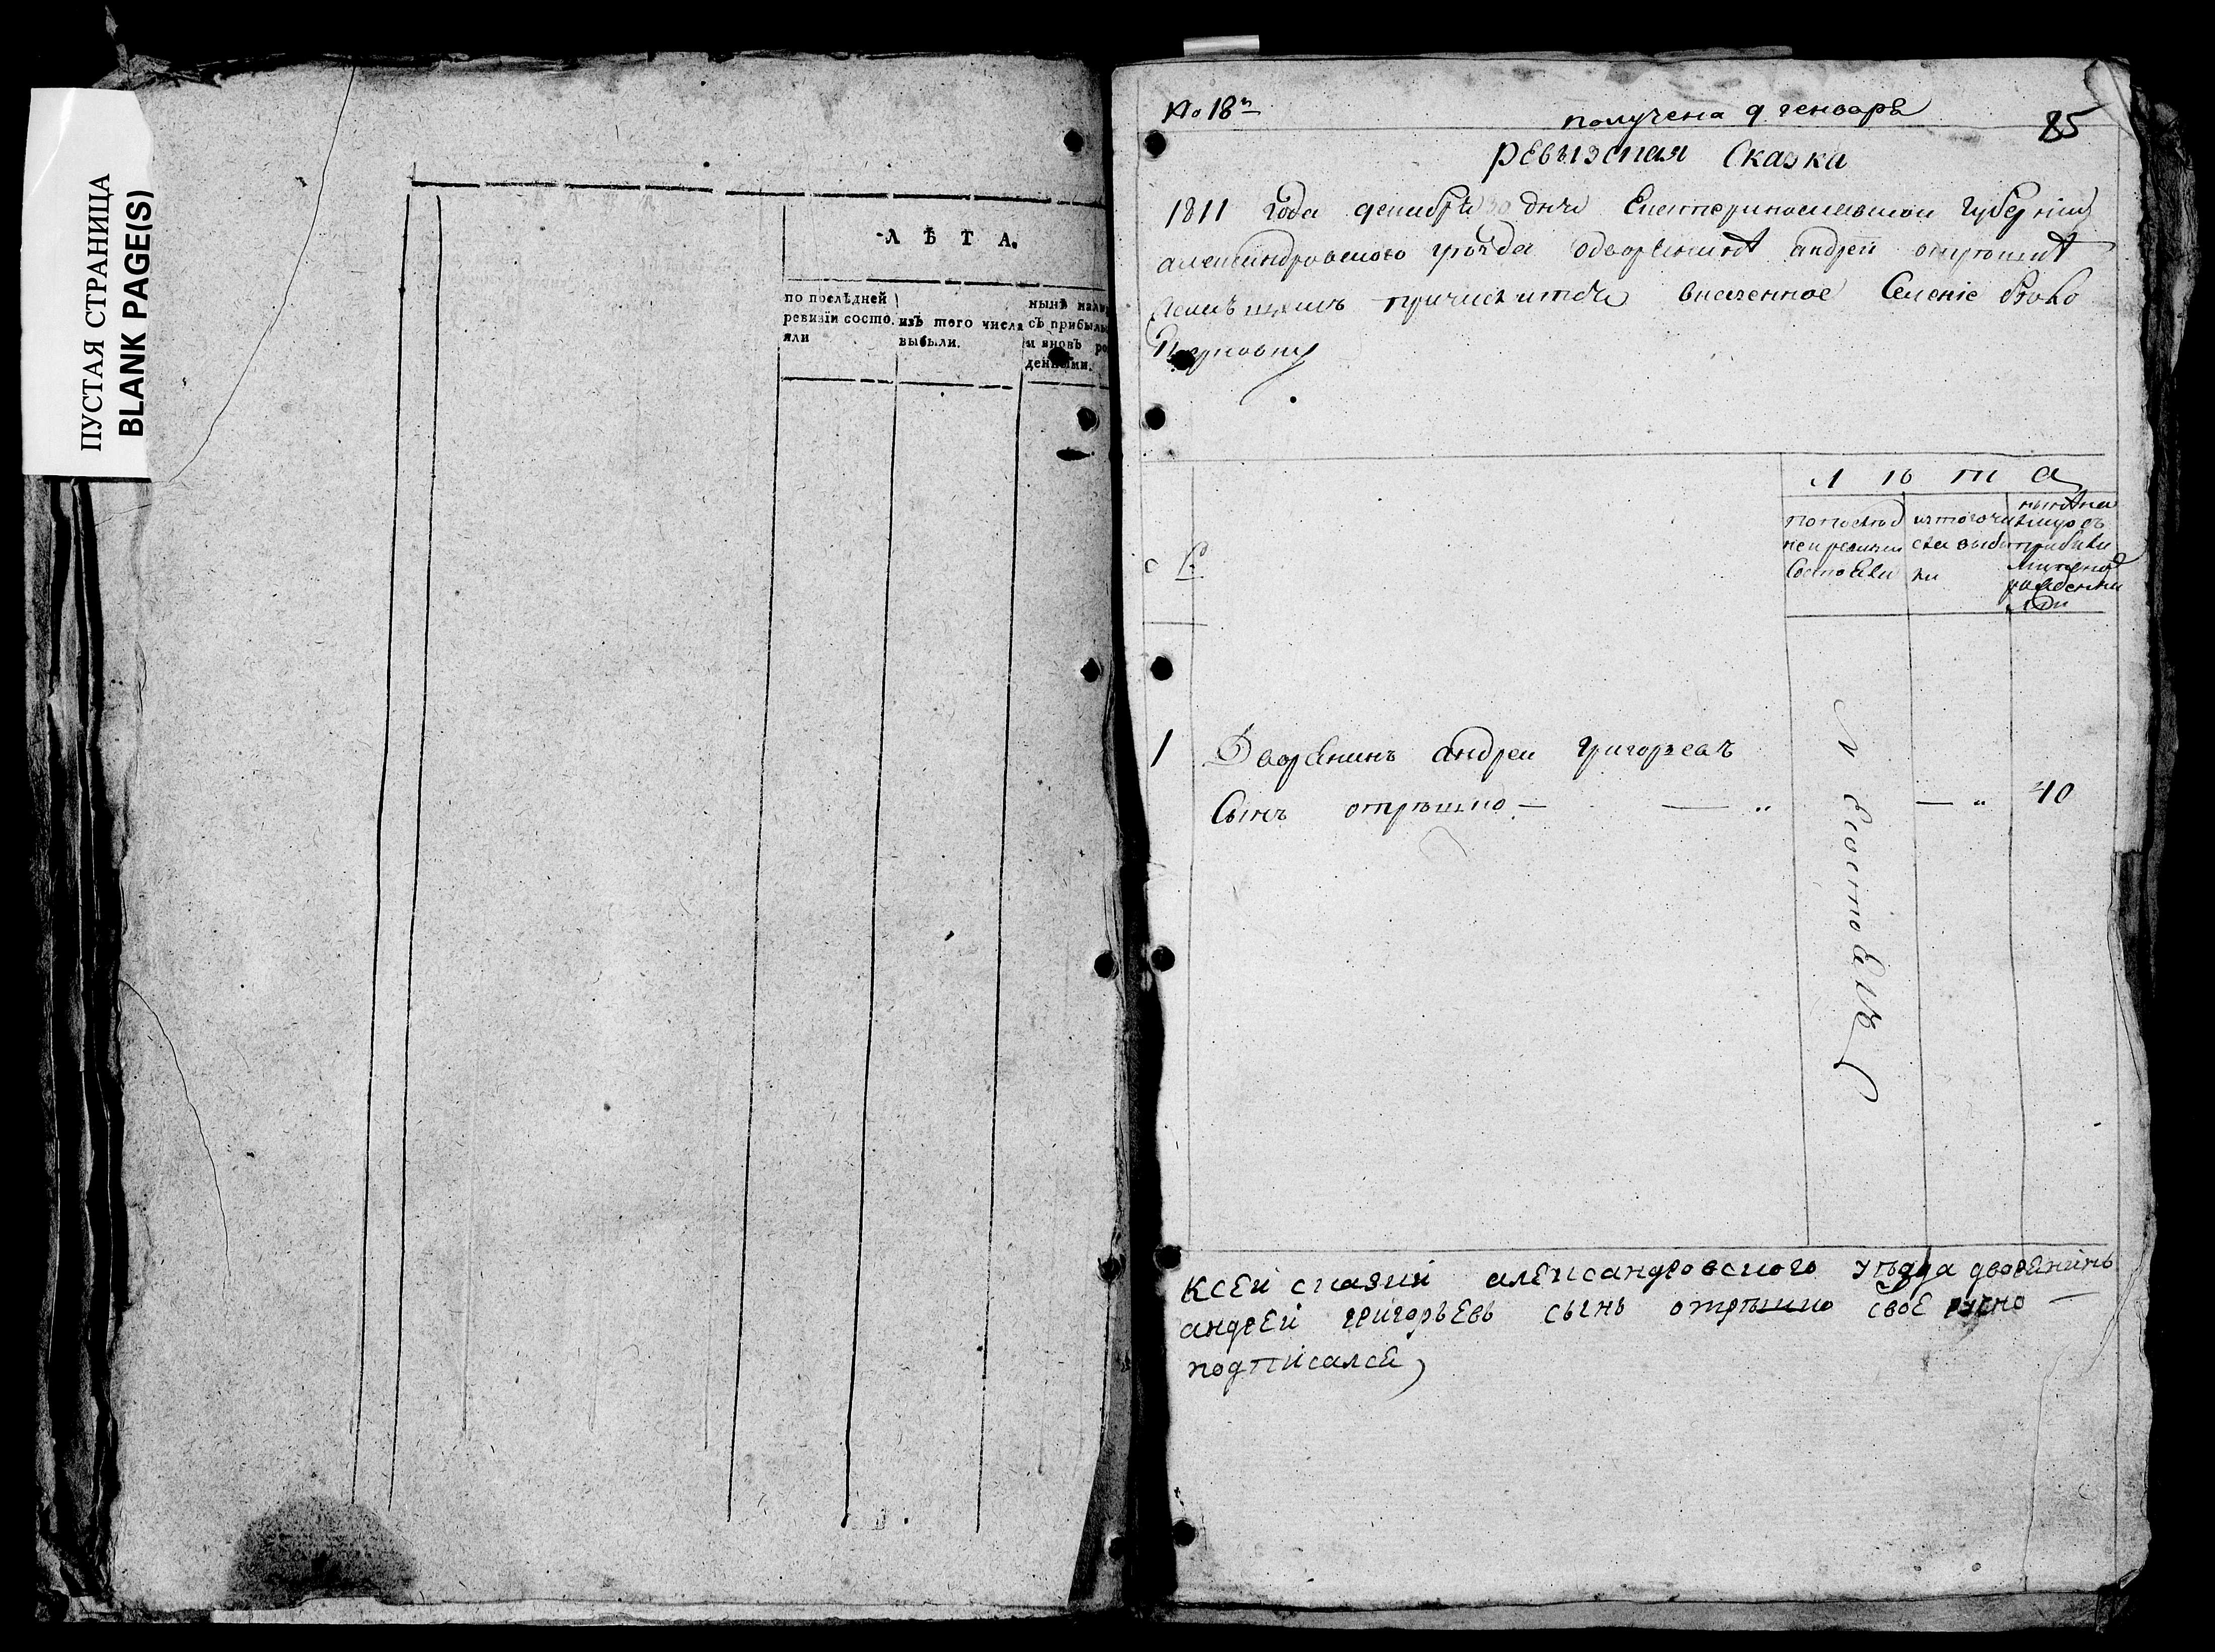 ПУСТАЯ СТРАНИЦА
BLANK PAGE(S)
Л Ѣ Т А.
по послѣдней
ревизіи состо.
яли
изъ того числа
выбыли.
нынѣ
съ прибыл
и вновь ро
денными.
№ 18й
получена 9 генваря
85
ревызская сказка
1811 года декабря 30 дня Екатеринославской губерніи
александровского уѣзда одворенинѣ андрей
причислитса вказенное селеніе
Л ѣ т а
попослѣд
неи ревизии
состоели
изтого чи
сла выби
ли
нынѣ на
лицо съ
прибили
рожденни
ми
1 Дворенинъ андреи григорьевъ
Сынъ отрѣшко — — „ — „ 40
Не состоелъ
ксеи сказки александровского уѣзда дворенинъ
андреи григорьевъ сынъ отрѣшко своеручно —
подписалсе